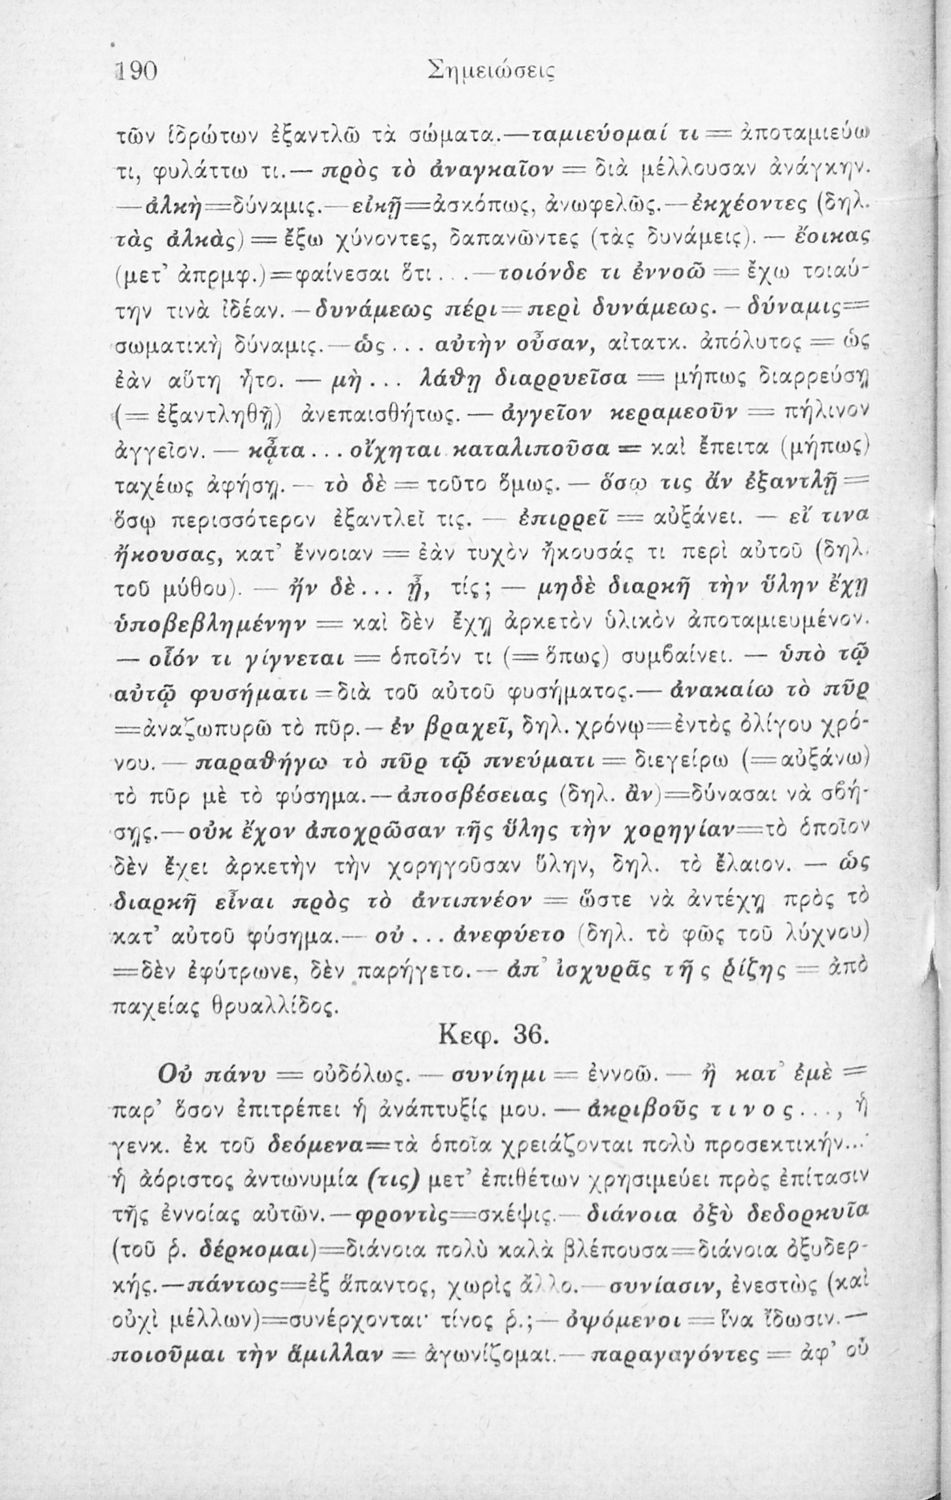 190 Σημειώσεις
τῶν ἱδρώτων ἐξαντλῶ τὰ σώματα.—ταμιεύομαί τι = ἀποταμιεύω
τι, φυλάττω τι.— πρὸς τὸ ἀναγκαῖον = διὰ μέλλουσαν ἀνάγκην.
—ἀλκὴ=δύναμις.—εἰκῇ=ἀσκόπως, ἀνωφελῶς.—ἐκχέοντες (δηλ.
τὰς ἀλκὰς) = ἔξω χύνοντες, δαπανῶντες (τὰς δυνάμεις). — ἔοικας
(μετ’ ἀπρμφ.)=φαίνεσαι ὅτι...—τοιόνδε τι ἐννοῶ = ἔχω τοιαύ-
την τινὰ ἰδέαν.—δυνάμεως πέρι=περὶ δυνάμεως. – δύναμις=
σωματικὴ δύναμις.—ὡς ... αὐτὴν οὖσαν, αἰτατκ. ἀπόλυτος = ὡς
ἐὰν αὕτη ἦτο. — μὴ ... λάθῃ διαρρυεῖσα = μήπως διαρρεύσῃ
(= ἐξαντληθῇ) ἀνεπαισθήτως. — ἀγγεῖον κεραμεοῦν = πήλινον
ἀγγεῖον. — κᾆτα... οἴχηται καταλιποῦσα = καὶ ἔπειτα (μήπως)
ταχέως ἀφήσῃ. — τὸ δὲ = τοῦτο ὅμως. — ὅσῳ τις ἂν ἐξαντλῇ =
ὅσῳ περισσότερον ἐξαντλεῖ τις. — ἐπιρρεῖ = αὐξάνει. — εἴ τινα
ἤκουσας, κατ’ ἔννοιαν = ἐὰν τυχὸν ἤκουσάς τι περὶ αὐτοῦ (δηλ.
τοῦ μύθου). — ἤν δὲ... ᾖ, τίς; — μηδὲ διαρκῆ τὴν ὕλην ἔχῃ
ὑποβεβλημένην = καὶ δὲν ἔχῃ ἀρκετὸν ὑλικὸν ἀποταμιευμένον.
— οἷόν τι γίγνεται = ὁποῖόν τι (= ὅπως) συμβαίνει. — ὑπὸ τῷ
αὐτῷ φυσήματι = διὰ τοῦ αὐτοῦ φυσήματος.— ἀνακαίω τὸ πῦρ
=ἀναζωπυρῶ τὸ πῦρ.— ἐν βραχεῖ, δηλ. χρόνῳ=ἐντὸς ὀλίγου χρό-
νου. — παραθήγω τὸ πῦρ τῷ πνεύματι = διεγείρω (=αὐξάνω)
τὸ πῦρ μὲ τὸ φύσημα.—ἀποσβέσειας (δηλ. ἂν)=δύνασαι νὰ σβή-
σῃς.—οὐκ ἔχον ἀποχρῶσαν τῆς ὕλης τὴν χορηγίαν=τὸ ὁποῖον
δὲν ἔχει ἀρκετὴν τὴν χορηγοῦσαν ὕλην, δηλ. τὸ ἔλαιον. — ὡς
διαρκῆ εἶναι πρὸς τὸ ἀντιπνέον = ὥστε νὰ ἀντέχῃ πρὸς τὸ
κατ’ αὐτοῦ φύσημα.— οὐ ... ἀνεφύετο (δηλ. τὸ φῶς τοῦ λύχνου)
=δὲν ἐφύτρωνε, δὲν παρήγετο.— ἀπ’ ἰσχυρᾶς τῆς ῥίζης = ἀπὸ
παχείας θρυαλλίδος.
Κεφ. 36.
Οὐ πάνυ = οὐδόλως. — συνίημι = ἐννοῶ. — ἢ κατ’ ἐμὲ =
παρ’ ὅσον ἐπιτρέπει ἡ ἀνάπτυξίς μου. — ἀκριβοῦς τινος..., ἡ
γενκ. ἐκ τοῦ δεόμενα=τὰ ὁποῖα χρειάζονται πολὺ προσεκτικήν...
ἡ ἀόριστος ἀντωνυμία (τις) μετ’ ἐπιθέτων χρησιμεύει πρὸς ἐπίτασιν
τῆς ἐννοίας αὐτῶν.—φροντὶς=σκέψις.—διάνοια ὀξὺ δεδορκυῖα
(τοῦ ῥ. δέρκομαι)=διάνοια πολὺ καλὰ βλέπουσα=διάνοια ὀξυδερ-
κής.—πάντως=ἐξ ἅπαντος, χωρὶς ἄλλο.—συνίασιν, ἐνεστὼς (καὶ
οὐχὶ μέλλων)=συνέρχονται· τίνος ῥ.;— ὀψόμενοι = ἵνα ἴδωσιν.—
ποιοῦμαι τὴν ἅμιλλαν = ἀγωνίζομαι.— παραγαγόντες = ἀφ’ οὗ